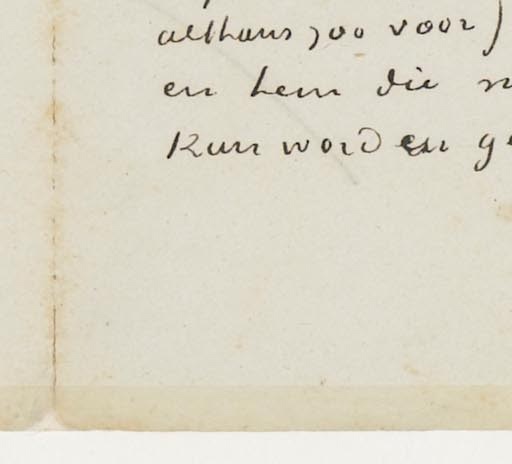 althans zoo voor)
en hem die
Kun worden